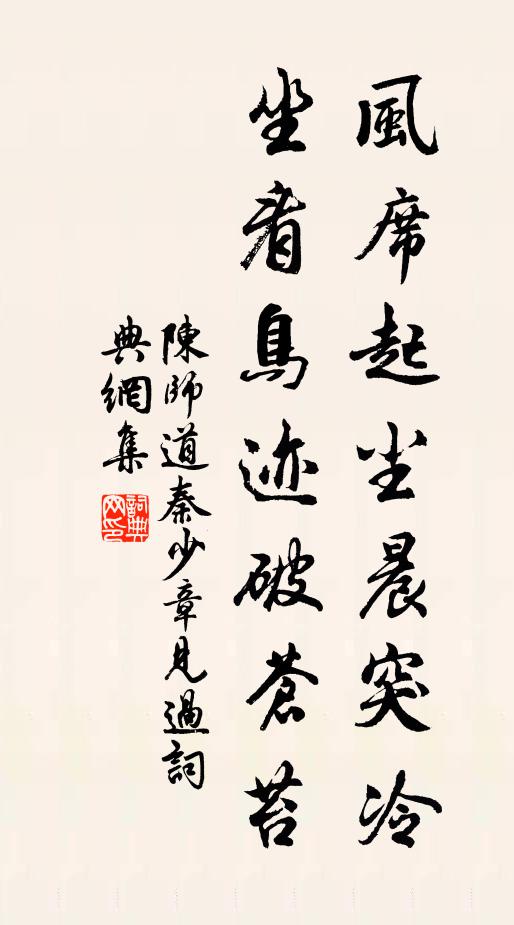 風席起尘晨突冷
坐看鳥迹破蒼苔
陳師道秦少章見過詞
典網集
詞典网印